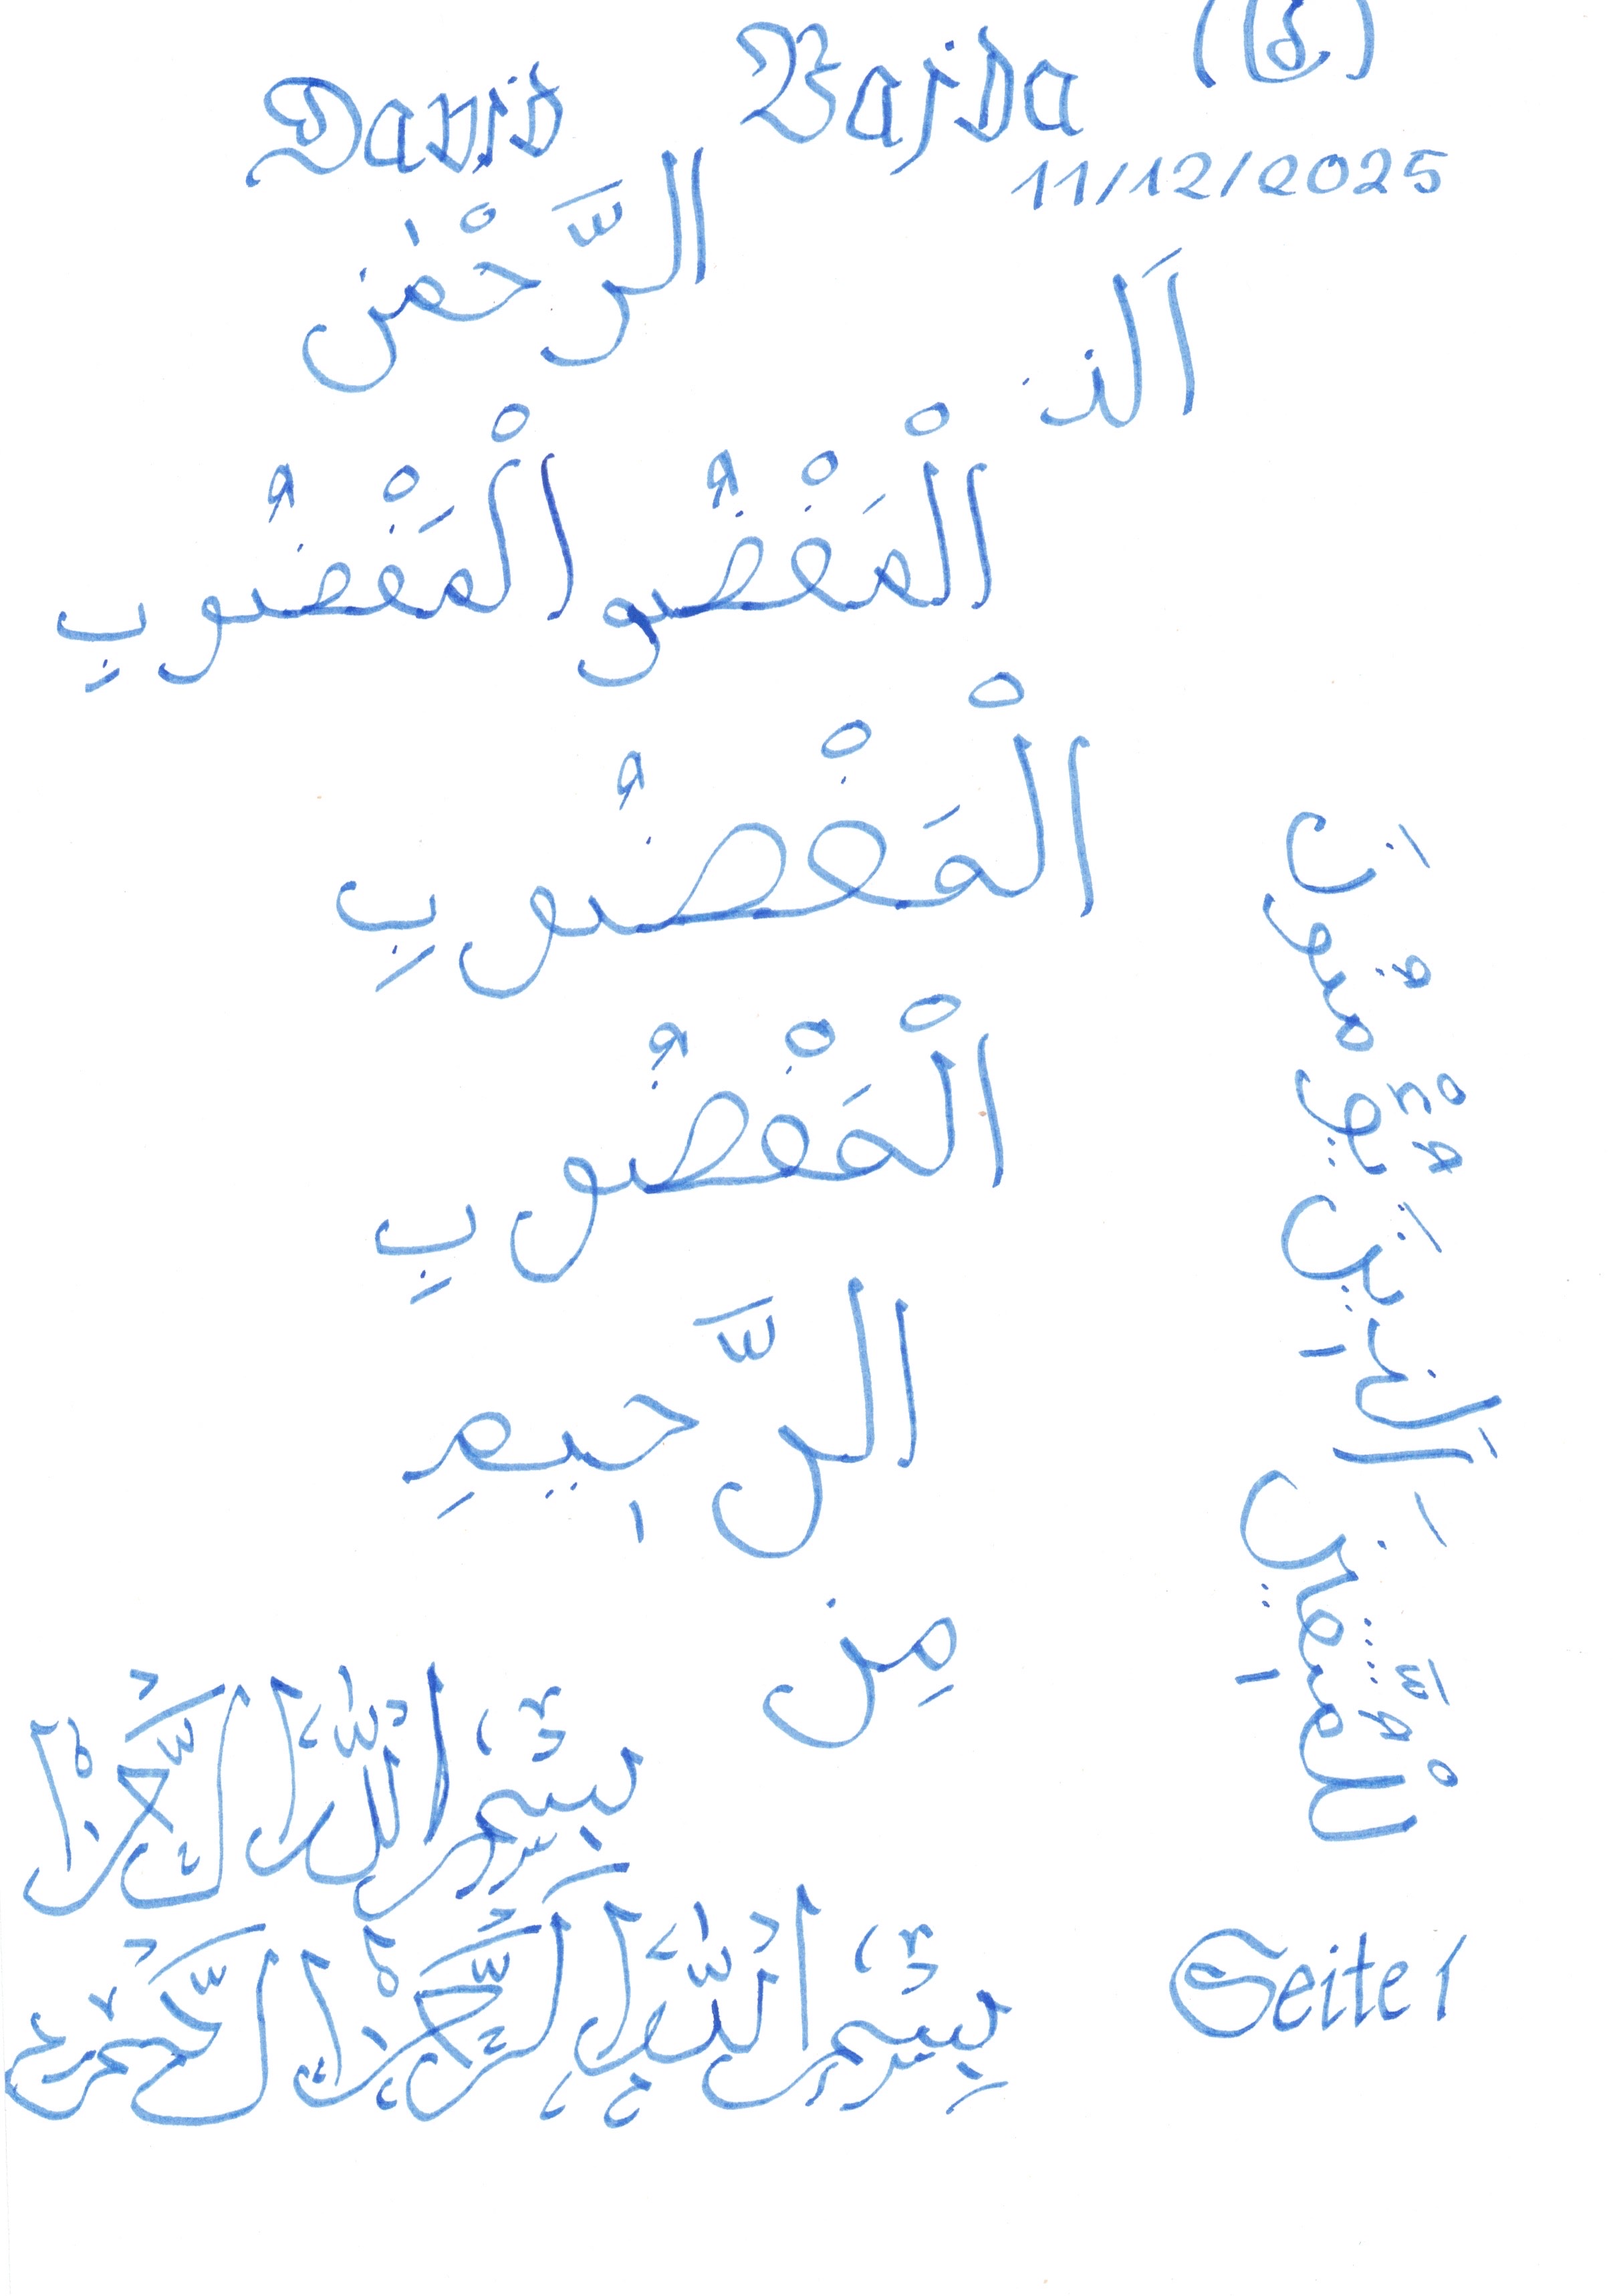 David Vajda
11/12/2025
الرَّحْمٰن
اَلذ
الْمَغْضُو الْمَغْضُوبِ
الْمَغْضُوبِ
الْمَغْضُوبِ
الرَّحِيمِ
مِن
لِلْمُتَّقِينَ اَلَّذِينَ يُؤْمِنُونَ
بِسْمِ اللّٰهِ
بِسْمِ اللّٰهِ الرَّحْمٰنِ الرَّحِيمِ
Seite 1